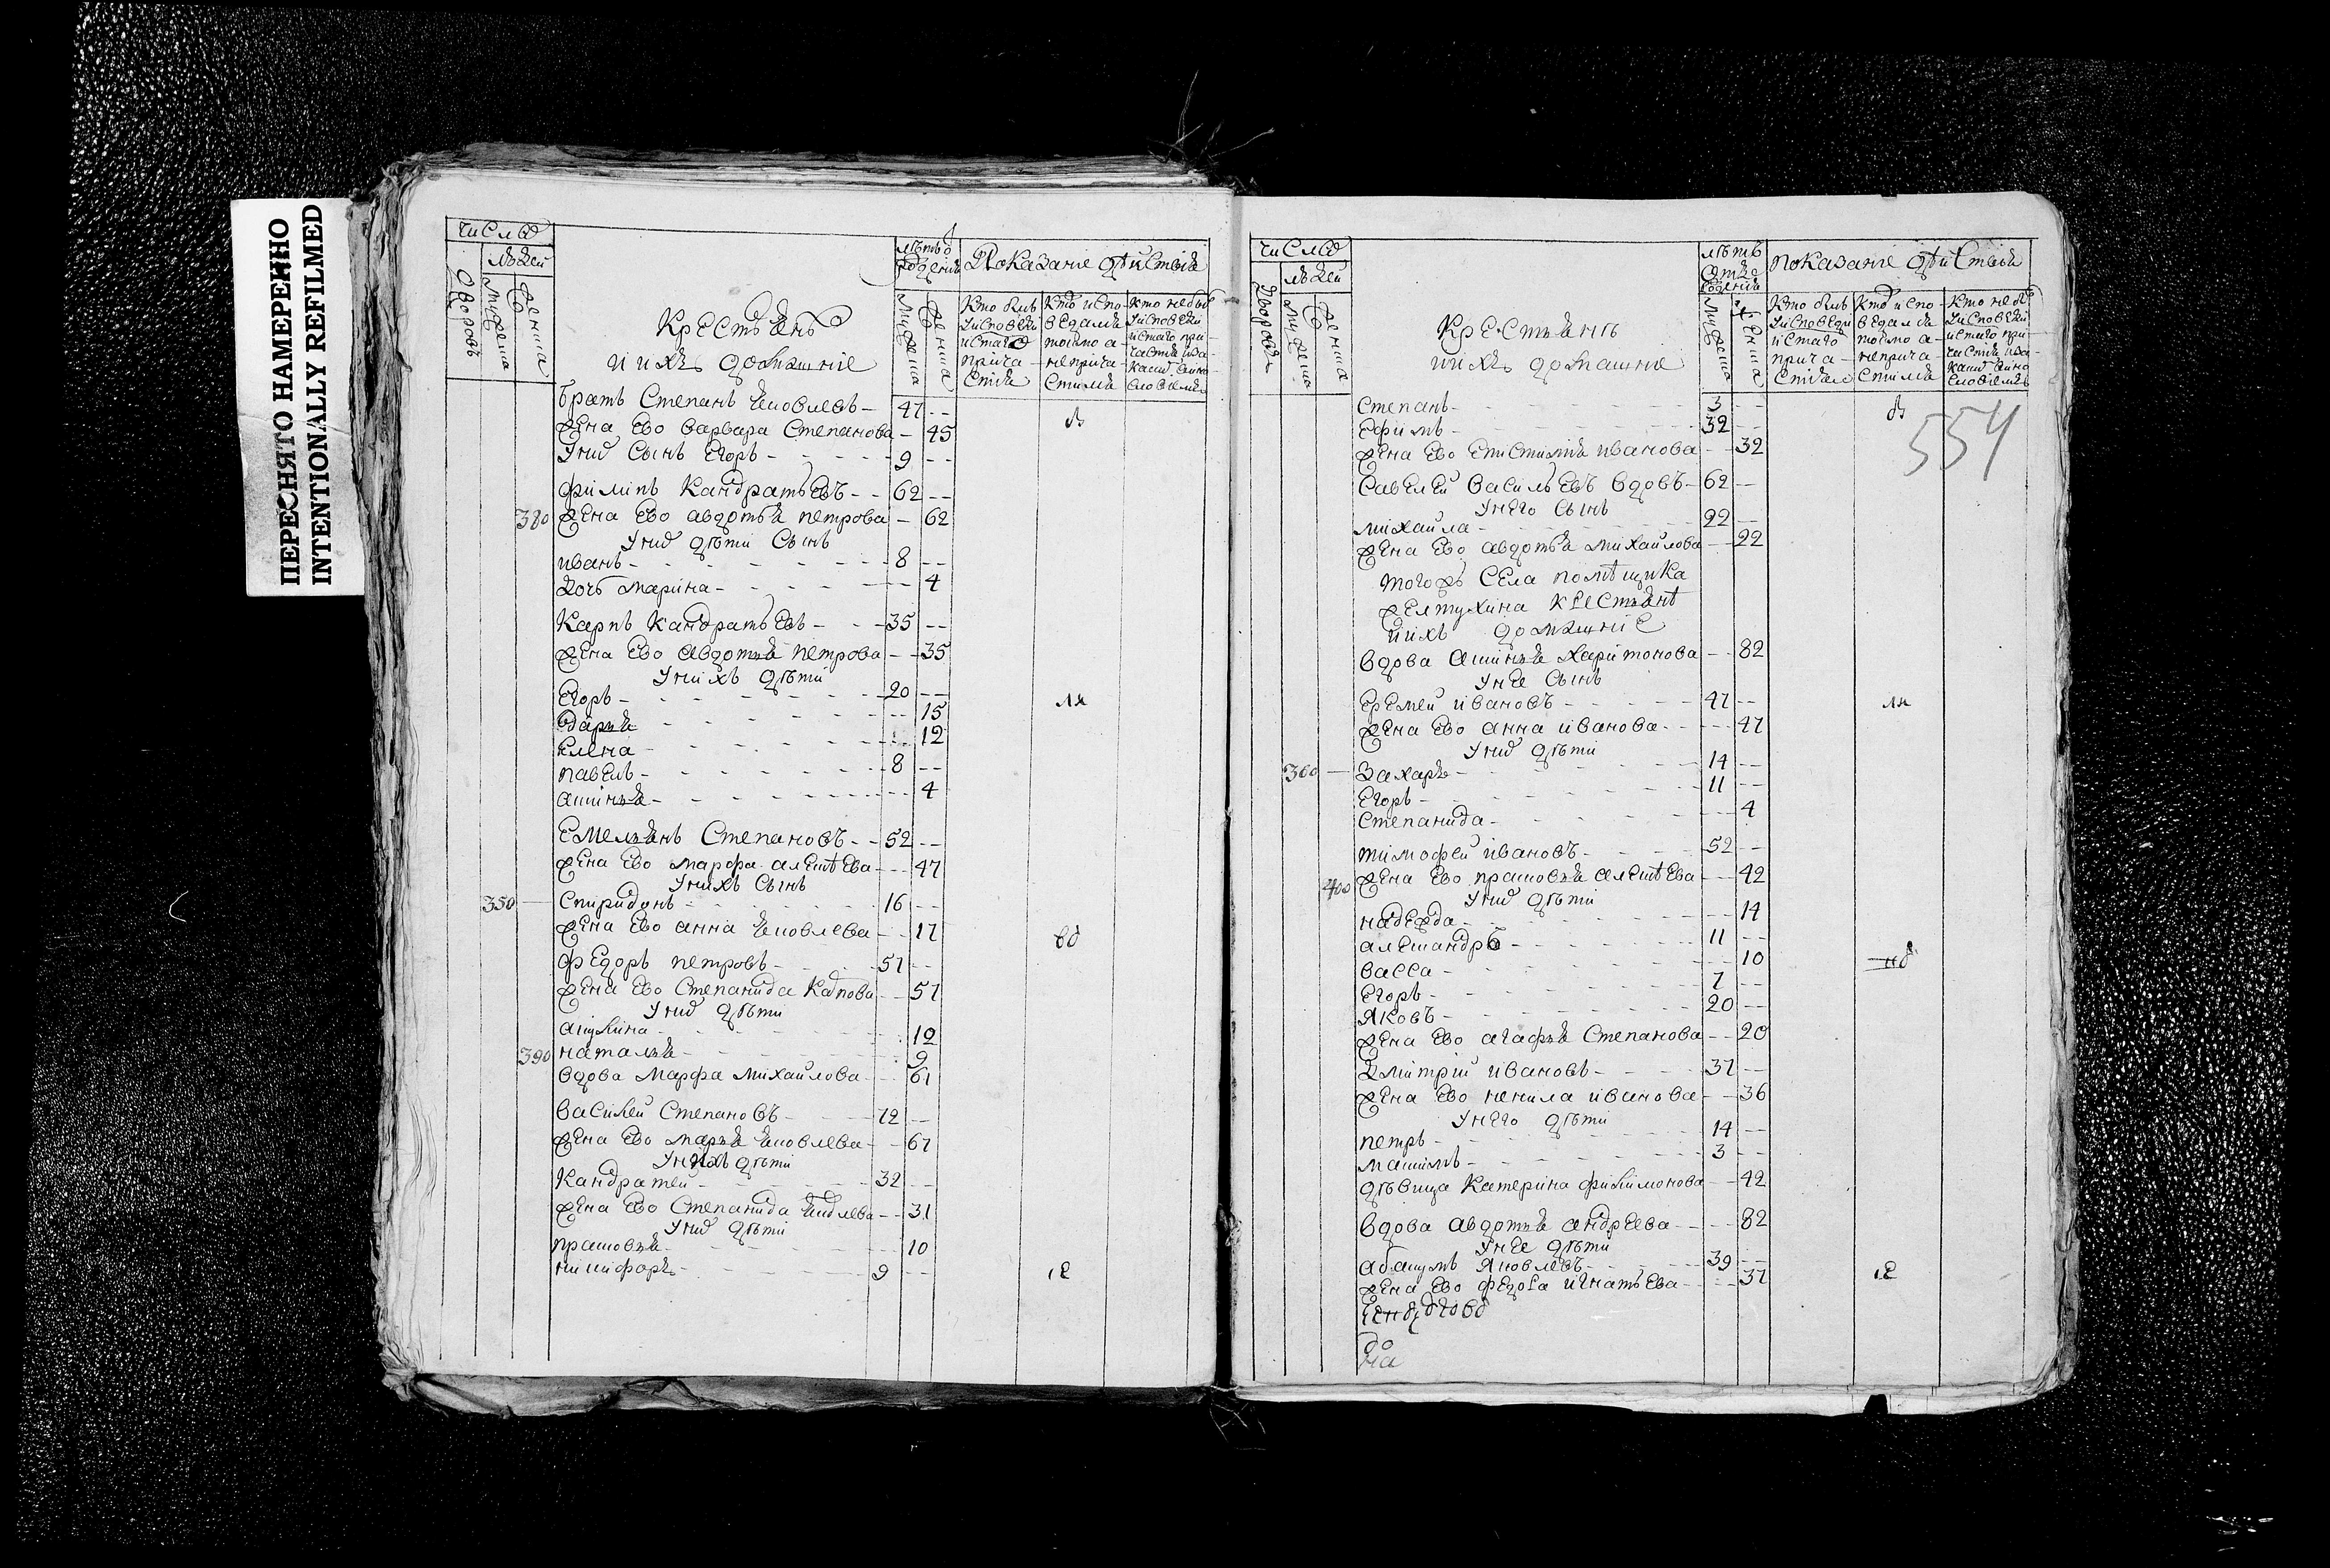 ПЕРЕСНЯТО НАМЕРЕННО
INTENTIONALLY REFILMED
число
людей
дворовъ
мужеска
женска
Крестьянъ
и ихъ домашние
лѣтъ
рождения
Показание действия
мужеска
женска
кто былъ
у исповеди
и стаго
прича
стия
кто испо-
ведался
токмо а
не прича-
стился
кто не былъ
у исповеди
и стаго при-
частия
братъ Степанъ Яковлевъ - 47
жена Ево варвара Степанова - 45
Сынъ Егоръ - 9
филипъ Кандратьевъ - 62
380 жена Ево авдотья петрова - 62
дѣти Сынъ
иванъ - 8
дочь марина - 4
Карпъ Кандратьевъ - 35
жена Ево авдотья петрова - 35
У нихъ дѣти
Егоръ - 20
дарья - 15
Елена - 12
павелъ - 8
аксинья - 4
Емельянъ Степановъ - 52
жена Ево марфа алексѣева - 47
У нихъ Сынъ
350 Спиридонъ - 16
жена Ево анна Яковлева - 17
федоръ петровъ - 51
жена Ево Степанида - 51
дѣти
акулина - 12
390 наталья - 9
вдова марфа михайлова - 61
василей Степановъ - 72
жена Ево марья Яковлева - 67
У нихъ дѣти
Кандратей - 32
жена Ево Степанида - 31
дѣти
прасковья - 10
никифоръ - 9
ля
вд
,е
число
людей
дворовъ
мужеска
женска
Крестьянъ
и ихъ домашние
лѣтъ
от
рождения
показание действия
мужеска
женска
кто былъ
у исповеди
и стаго
прича-
стия
кто испо-
ведался
токмо а
не прича-
стился
кто не былъ
у исповеди
и стаго при-
частия
554
Степанъ - 3
Ефимъ - 32
жена Ево иванова - 32
Савелей васильевъ вдовъ - 62
У него Сынъ
михаила - 22
жена Ево авдотья михайлова - 22
тогожъ Села помѣщика
желтухина крестьянъ
и ихъ домашние
вдова аксинья харитонова - 82
У нее Сынъ
Еремей ивановъ - 47
жена Ево анна иванова - 47
дѣти
360 Захаръ - 14
Егоръ - 11
Степанида - 4
тимофей ивановъ - 52
400 жена Ево прасковья алексѣева - 42
дѣти
надежда - 14
александръ - 11
васса - 10
Егоръ - 7
Яковъ - 20
жена Ево агафья Степанова - 20
дмитрий ивановъ - 37
жена Ево ненила иванова - 36
У него дѣти
петръ - 14
максимъ - 3
дѣвица Катерина филимонова - 42
вдова авдотья андреева - 82
У нее дѣти
абакумъ Яковлевъ - 39
жена Ево федора игнатьева - 37
ля
,е
до
на